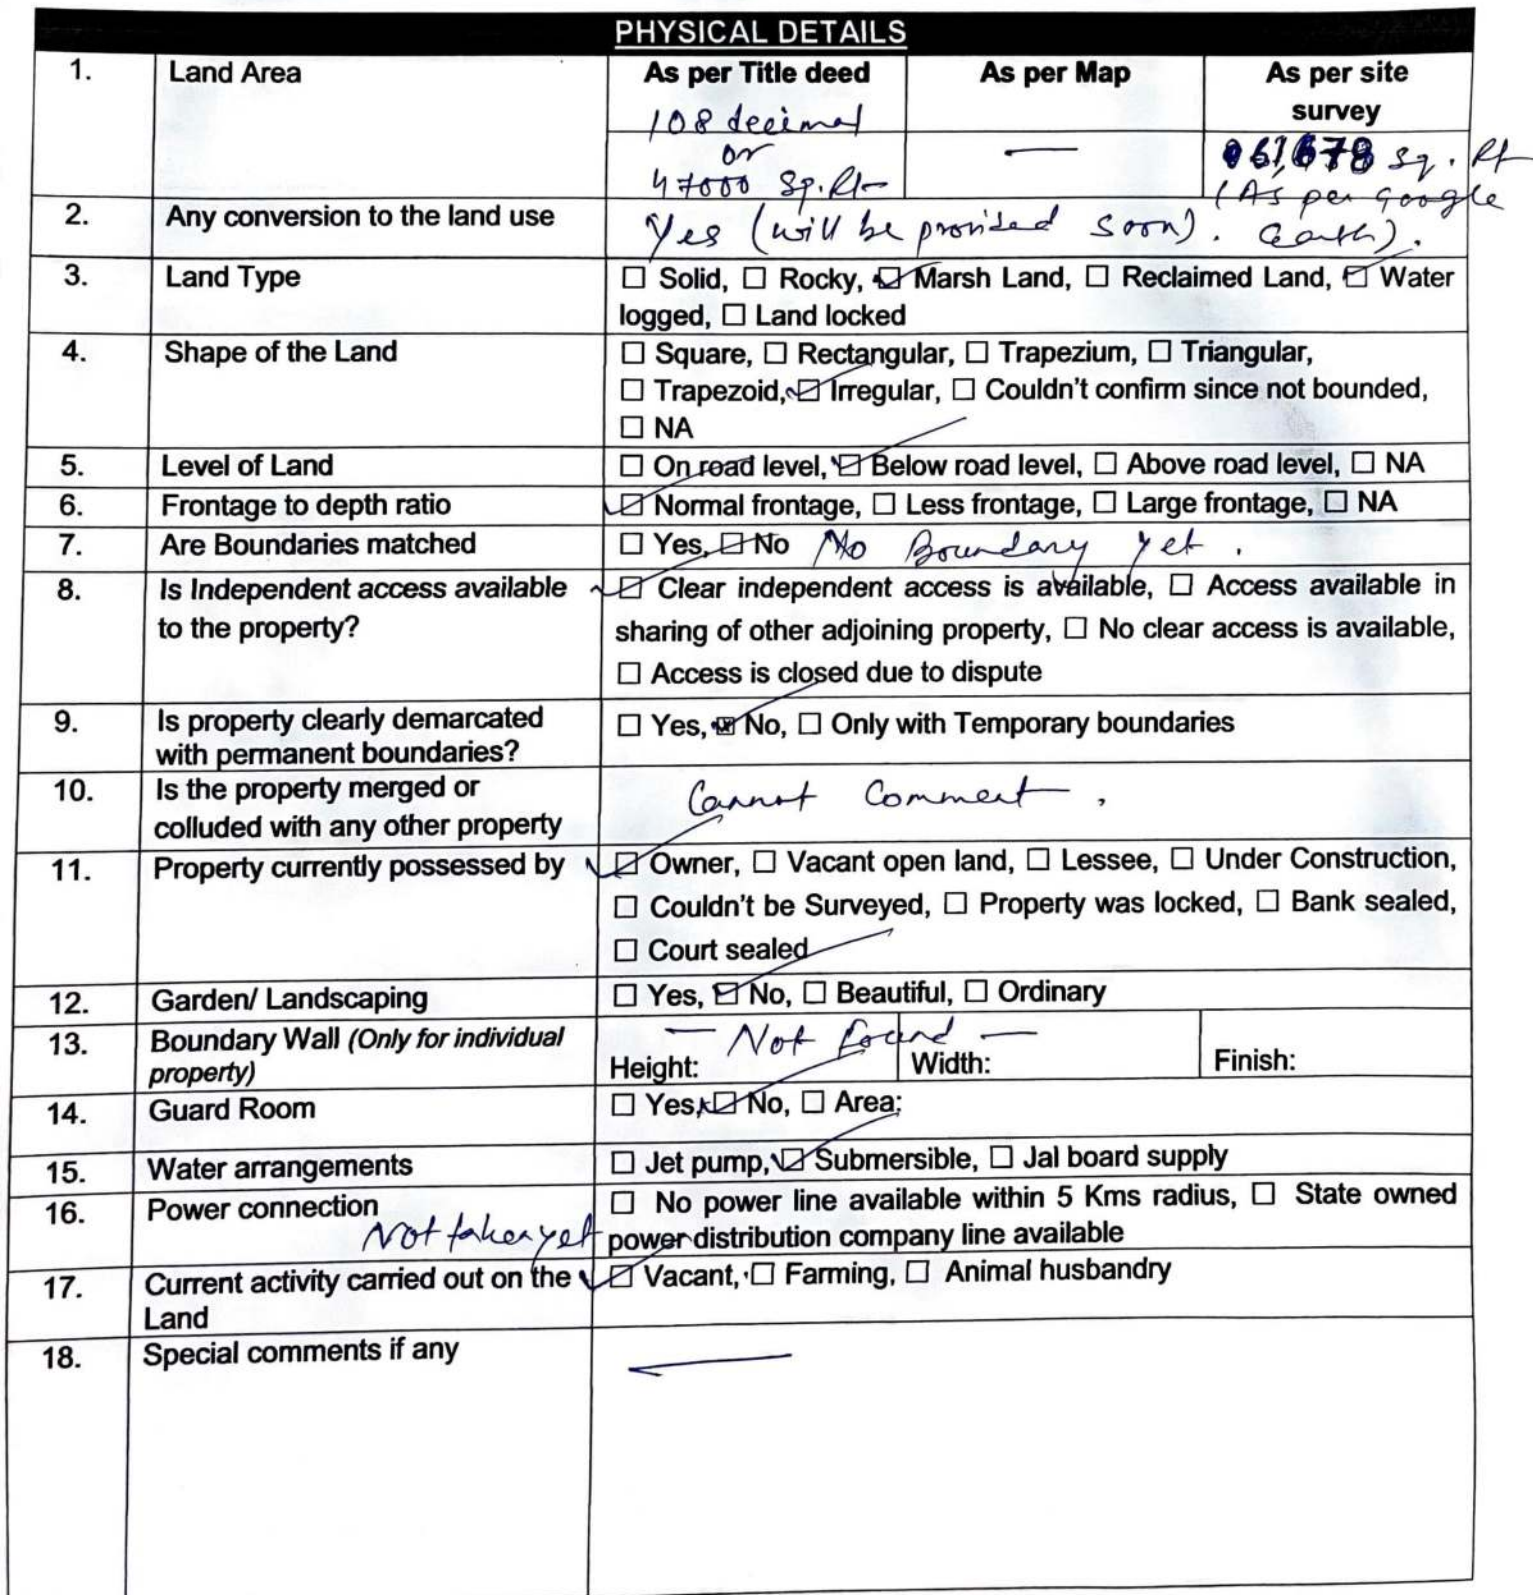 PHYSICAL DETAILS
1. Land Area As per Title deed As per Map As per site survey
108 decimal
or
47000 Sq. ft
—
61,678 sq. ft
(As per Google Earth).
2. Any conversion to the land use Yes (will be provided soon).
3. Land Type ☐ Solid, ☐ Rocky, ☑ Marsh Land, ☐ Reclaimed Land, ☑ Water
logged, ☐ Land locked
4. Shape of the Land ☐ Square, ☐ Rectangular, ☐ Trapezium, ☐ Triangular,
☐ Trapezoid, ☑ Irregular, ☐ Couldn't confirm since not bounded,
☐ NA
5. Level of Land ☐ On road level, ☑ Below road level, ☐ Above road level, ☐ NA
6. Frontage to depth ratio ☑ Normal frontage, ☐ Less frontage, ☐ Large frontage, ☐ NA
7. Are Boundaries matched ☐ Yes, ☑ No No Boundary yet.
8. Is Independent access available
to the property?
☑ Clear independent access is available, ☐ Access available in
sharing of other adjoining property, ☐ No clear access is available,
☐ Access is closed due to dispute
9. Is property clearly demarcated
with permanent boundaries?
☐ Yes, ☑ No, ☐ Only with Temporary boundaries
10. Is the property merged or
colluded with any other property
Cannot Comment.
11. Property currently possessed by ☑ Owner, ☐ Vacant open land, ☐ Lessee, ☐ Under Construction,
☐ Couldn't be Surveyed, ☐ Property was locked, ☐ Bank sealed,
☐ Court sealed
12. Garden/ Landscaping ☐ Yes, ☑ No, ☐ Beautiful, ☐ Ordinary
13. Boundary Wall (Only for individual
property)
— Not found —
Height: Width: Finish:
14. Guard Room ☐ Yes, ☑ No, ☐ Area:
15. Water arrangements ☐ Jet pump, ☑ Submersible, ☐ Jal board supply
16. Power connection ☐ No power line available within 5 Kms radius, ☐ State owned
Not taken yet power distribution company line available
17. Current activity carried out on the
Land
☑ Vacant, ☐ Farming, ☐ Animal husbandry
18. Special comments if any —